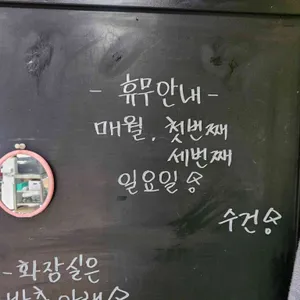 - 휴무안내 -
매월, 첫번째
세번째
일요일
수건
- 화장실은